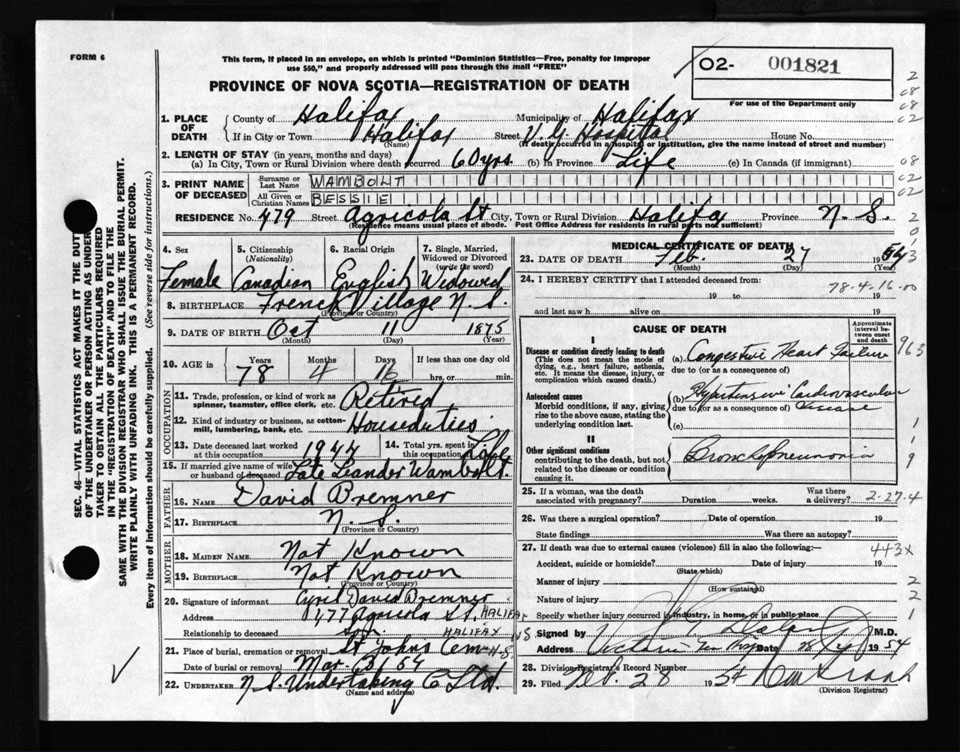 FORM 6
This form, if placed in an envelope, on which is printed "Dominion Statistics—Free, penalty for improper
use $50," and properly addressed will pass through the mail "FREE"
PROVINCE OF NOVA SCOTIA—REGISTRATION OF DEATH
O2- 001821
For use of the Department only
1. PLACE OF DEATH
County of Halifax Municipality of Halifax
If in City or Town Halifax Street V.G. Hospital House No.
(Name) (If death occurred in a hospital or institution, give the name instead of street and number)
2. LENGTH OF STAY (in years, months and days)
(a) In City, Town or Rural Division where death occurred 60 yrs. (b) In Province Life (c) In Canada (if immigrant)
3. PRINT NAME OF DECEASED
Surname or Last Name WAMBOLT
All Given or Christian Names BESSIE
RESIDENCE No. 479 Street Agricola St City, Town or Rural Division Halifax Province N. S.
(Residence means usual place of abode. Post Office Address for residents in rural parts not sufficient)
4. Sex Female
5. Citizenship (Nationality) Canadian
6. Racial Origin English
7. Single, Married, Widowed or Divorced (write the word) Widowed
8. BIRTHPLACE French Village N. S.
(Province or Country)
9. DATE OF BIRTH Oct 11 1875
(Month) (Day)
10. AGE in Years 78 Months 4 Days 16 If less than one day old hrs. or min.
OCCUPATION
11. Trade, profession, or kind of work as spinner, teamster, office clerk, etc. Retired
12. Kind of industry or business, as cotton-mill, lumbering, bank, etc. Houseduties
13. Date deceased last worked at this occupation 1947 14. Total yrs. spent in this occupation Life
15. If married give name of wife or husband of deceased Late Leander Wambolt.
FATHER
16. NAME David Bremner
17. BIRTHPLACE N. S.
(Province or Country)
MOTHER
18. MAIDEN NAME Not Known
19. BIRTHPLACE Not Known
(Province or Country)
20. Signature of informant Cyril David Bremner
Address 177 Agricola St. HALIFAX
Relationship to deceased son HALIFAX NS
21. Place of burial, cremation or removal St Johns Cem N-S
Date of burial or removal Mar 54
22. UNDERTAKER N S. Undertaking Co Ltd.
(Name and address)
MEDICAL CERTIFICATE OF DEATH
23. DATE OF DEATH Feb. 27 1954
(Month) (Day) (Year)
24. I HEREBY CERTIFY that I attended deceased from:
78-4-16-00
19 to 19
and last saw h alive on 19
CAUSE OF DEATH
Approximate interval between onset and death
I
Disease or condition directly leading to death
(This does not mean the mode of dying, e.g., heart failure, asthenia, etc. It means the disease, injury, or complication which caused death.)
(a) Congestive Heart Failure 963
due to (or as a consequence of)
Antecedent causes
Morbid conditions, if any, giving rise to the above cause, stating the underlying condition last.
(b) Hypertensive Cardiovascular Disease
due to (or as a consequence of)
(c)
II
Other significant conditions
contributing to the death, but not related to the disease or condition causing it.
Bronchopneumonia
25. If a woman, was the death associated with pregnancy? Duration weeks. Was there a delivery? 2-27-4
26. Was there a surgical operation? Date of operation 19
State findings Was there an autopsy?
27. If death was due to external causes (violence) fill in also the following:— 443X
Accident, suicide or homicide? Date of injury 19
(State which)
Manner of injury
(How sustained)
Nature of injury
Specify whether injury occurred in industry, in home, or in public place
Signed by M.D.
Address Victoria Gen Hosp Date 28 1954
28. Division Registrar's Record Number
29. Filed Feb. 28 1954
(Division Registrar)
SEC. 46—VITAL STATISTICS ACT MAKES IT THE DUTY
OF THE UNDERTAKER OR PERSON ACTING AS UNDER-
TAKER TO OBTAIN ALL THE PARTICULARS REQUIRED
IN THE "REGISTRATION OF DEATH" AND TO FILE THE
SAME WITH THE DIVISION REGISTRAR WHO SHALL ISSUE THE BURIAL PERMIT.
WRITE PLAINLY WITH UNFADING INK. THIS IS A PERMANENT RECORD.
Every item of information should be carefully supplied. (See reverse side for instructions.)